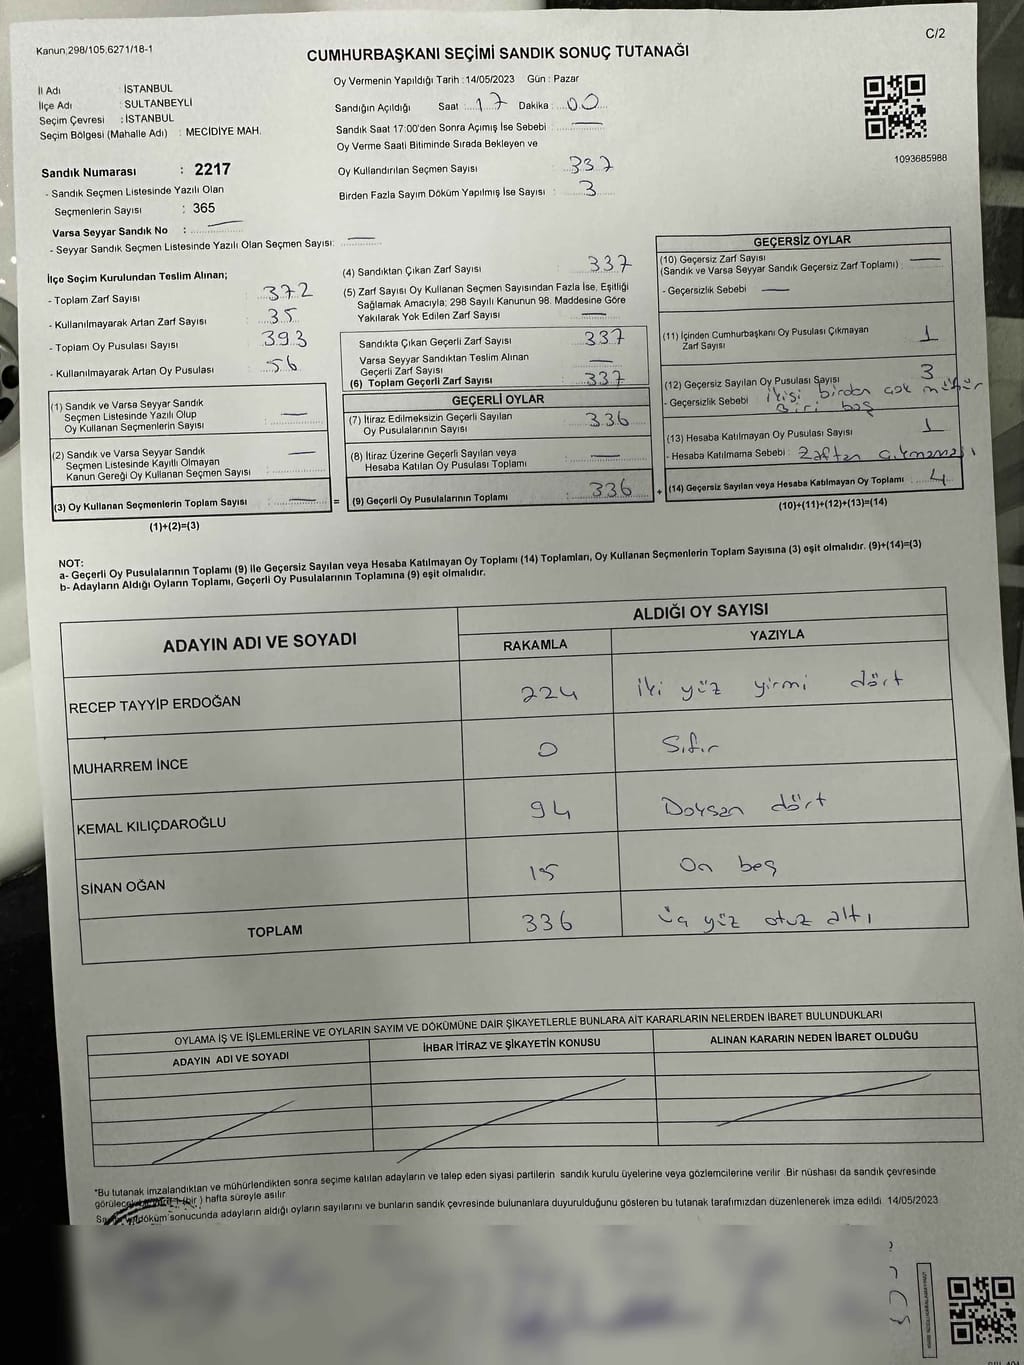 Kanun;298/105,6271/18-1
C/2
CUMHURBAŞKANI SEÇİMİ SANDIK SONUÇ TUTANAĞI
İl Adı : İSTANBUL
İlçe Adı : SULTANBEYLİ
Seçim Çevresi : İSTANBUL
Seçim Bölgesi (Mahalle Adı) : MECİDİYE MAH.
Oy Vermenin Yapıldığı Tarih : 14/05/2023 Gün : Pazar
Sandığın Açıldığı Saat : 17 Dakika : 00
Sandık Saat 17:00'den Sonra Açımış İse Sebebi : —
Oy Verme Saati Bitiminde Sırada Bekleyen ve
Oy Kullandırılan Seçmen Sayısı : 337
Birden Fazla Sayım Döküm Yapılmış İse Sayısı : 3
1093685988
Sandık Numarası : 2217
- Sandık Seçmen Listesinde Yazılı Olan
Seçmenlerin Sayısı : 365
Varsa Seyyar Sandık No : —
- Seyyar Sandık Seçmen Listesinde Yazılı Olan Seçmen Sayısı: —
İlçe Seçim Kurulundan Teslim Alınan;
- Toplam Zarf Sayısı : 372
- Kullanılmayarak Artan Zarf Sayısı : 35
- Toplam Oy Pusulası Sayısı : 393
- Kullanılmayarak Artan Oy Pusulası : 56
(1) Sandık ve Varsa Seyyar Sandık
Seçmen Listesinde Yazılı Olup
Oy Kullanan Seçmenlerin Sayısı : —
(2) Sandık ve Varsa Seyyar Sandık
Seçmen Listesinde Kayıtlı Olmayan
Kanun Gereği Oy Kullanan Seçmen Sayısı : —
(3) Oy Kullanan Seçmenlerin Toplam Sayısı : — =
(1)+(2)=(3)
(4) Sandıktan Çıkan Zarf Sayısı : 337
(5) Zarf Sayısı Oy Kullanan Seçmen Sayısından Fazla İse, Eşitliği
Sağlamak Amacıyla; 298 Sayılı Kanunun 98. Maddesine Göre
Yakılarak Yok Edilen Zarf Sayısı : —
Sandıkta Çıkan Geçerli Zarf Sayısı : 337
Varsa Seyyar Sandıktan Teslim Alınan
Geçerli Zarf Sayısı : —
(6) Toplam Geçerli Zarf Sayısı : 337
GEÇERLİ OYLAR
(7) İtiraz Edilmeksizin Geçerli Sayılan
Oy Pusulalarının Sayısı : 336
(8) İtiraz Üzerine Geçerli Sayılan veya
Hesaba Katılan Oy Pusulası Toplamı : —
(9) Geçerli Oy Pusulalarının Toplamı : 336 +
GEÇERSİZ OYLAR
(10) Geçersiz Zarf Sayısı
(Sandık ve Varsa Seyyar Sandık Geçersiz Zarf Toplamı) : —
- Geçersizlik Sebebi : —
(11) İçinden Cumhurbaşkanı Oy Pusulası Çıkmayan
Zarf Sayısı : 1
(12) Geçersiz Sayılan Oy Pusulası Sayısı : 3
- Geçersizlik Sebebi : ikisi birden çok mühür
Biri boş
(13) Hesaba Katılmayan Oy Pusulası Sayısı : 1
- Hesaba Katılmama Sebebi : Zaftan çıkmaması
(14) Geçersiz Sayılan veya Hesaba Katılmayan Oy Toplamı : 4
(10)+(11)+(12)+(13)=(14)
NOT:
a- Geçerli Oy Pusulalarının Toplamı (9) İle Geçersiz Sayılan veya Hesaba Katılmayan Oy Toplamı (14) Toplamları, Oy Kullanan Seçmenlerin Toplam Sayısına (3) eşit olmalıdır. (9)+(14)=(3)
b- Adayların Aldığı Oyların Toplamı, Geçerli Oy Pusulalarının Toplamına (9) eşit olmalıdır.
ADAYIN ADI VE SOYADI ALDIĞI OY SAYISI
RAKAMLA YAZIYLA
RECEP TAYYİP ERDOĞAN 224 iki yüz yirmi dört
MUHARREM İNCE 0 Sıfır
KEMAL KILIÇDAROĞLU 94 Doksan dört
SİNAN OĞAN 15 On beş
TOPLAM 336 üç yüz otuz altı
OYLAMA İŞ VE İŞLEMLERİNE VE OYLARIN SAYIM VE DÖKÜMÜNE DAİR ŞİKAYETLERLE BUNLARA AİT KARARLARIN NELERDEN İBARET BULUNDUKLARI
ADAYIN ADI VE SOYADI İHBAR İTİRAZ VE ŞİKAYETİN KONUSU ALINAN KARARIN NEDEN İBARET OLDUĞU
*Bu tutanak imzalandıktan ve mühürlendikten sonra seçime katılan adayların ve talep eden siyasi partilerin sandık kurulu üyelerine veya gözlemcilerine verilir. Bir nüshası da sandık çevresinde
(bir) hafta süreyle asılır.
döküm sonucunda adayların aldığı oyların sayılarını ve bunların sandık çevresinde bulunanlara duyurulduğunu gösteren bu tutanak tarafımızdan düzenlenerek imza edildi. 14/05/2023